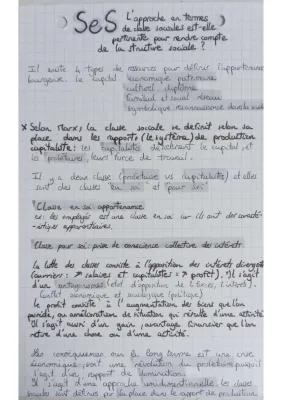 SeS
L'approche en termes
de classe sociales est-elle
pertinente pour rendre compte
de la structure sociale ?
Il existe 4 types de ressources pour définir l'appartenance
bourgeoise. Le capital économique patrimoine
culturel diplôme
familial et social réseau
symbolique reconnaissance
* Selon Marx, la classe sociale se définit selon sa
place dans les rapports (le système) de production
capitaliste : les capitalistes détiennent le capital et
la prolétaires, leurs force de travail.
Il y a deux classe (prolétaire vs capitaliste) et elles
sont des classes "en soi" et "pour soi"
Classe en soi : appartenance
ex: les employés est une classe en soi car ils ont des caracté-
ristiques
Classe pour soi : prise de conscience collective des intérêts
La lutte des classes consiste à l'opposition des intérêts divergents
(ouvriers : ↗ salaires et capitalistes = ↗ profit). Il s'agit
d'un antagonisme (état d'opposition de
Conflit économique et sociologique (politique)
le profit consiste à l'augmentation des biens que l'on
possède, ou amélioration de situation qui résulte d'une activité.
Il s'agit aussi d'un gain, avantage financier que l'on
retire d'une chose ou d'une activité.
Les conséquences sur le long terme est une crise
économique, soit une révolution du prolétariat puisqu'il
s'agit d'un rapport de domination.
Il s'agit d'une approche unidimensionnelle, les classes
sociales sont définies par la place dans le rapport de production